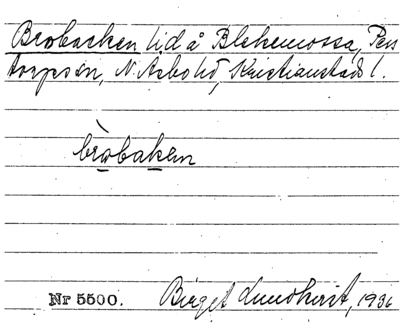 Brobacken lid å Blekemossa, Pers
torps sn, N. Åsbo hd, Kristianstads l.
brobaken
Nr 5500. Birget Lundkvist, 1936